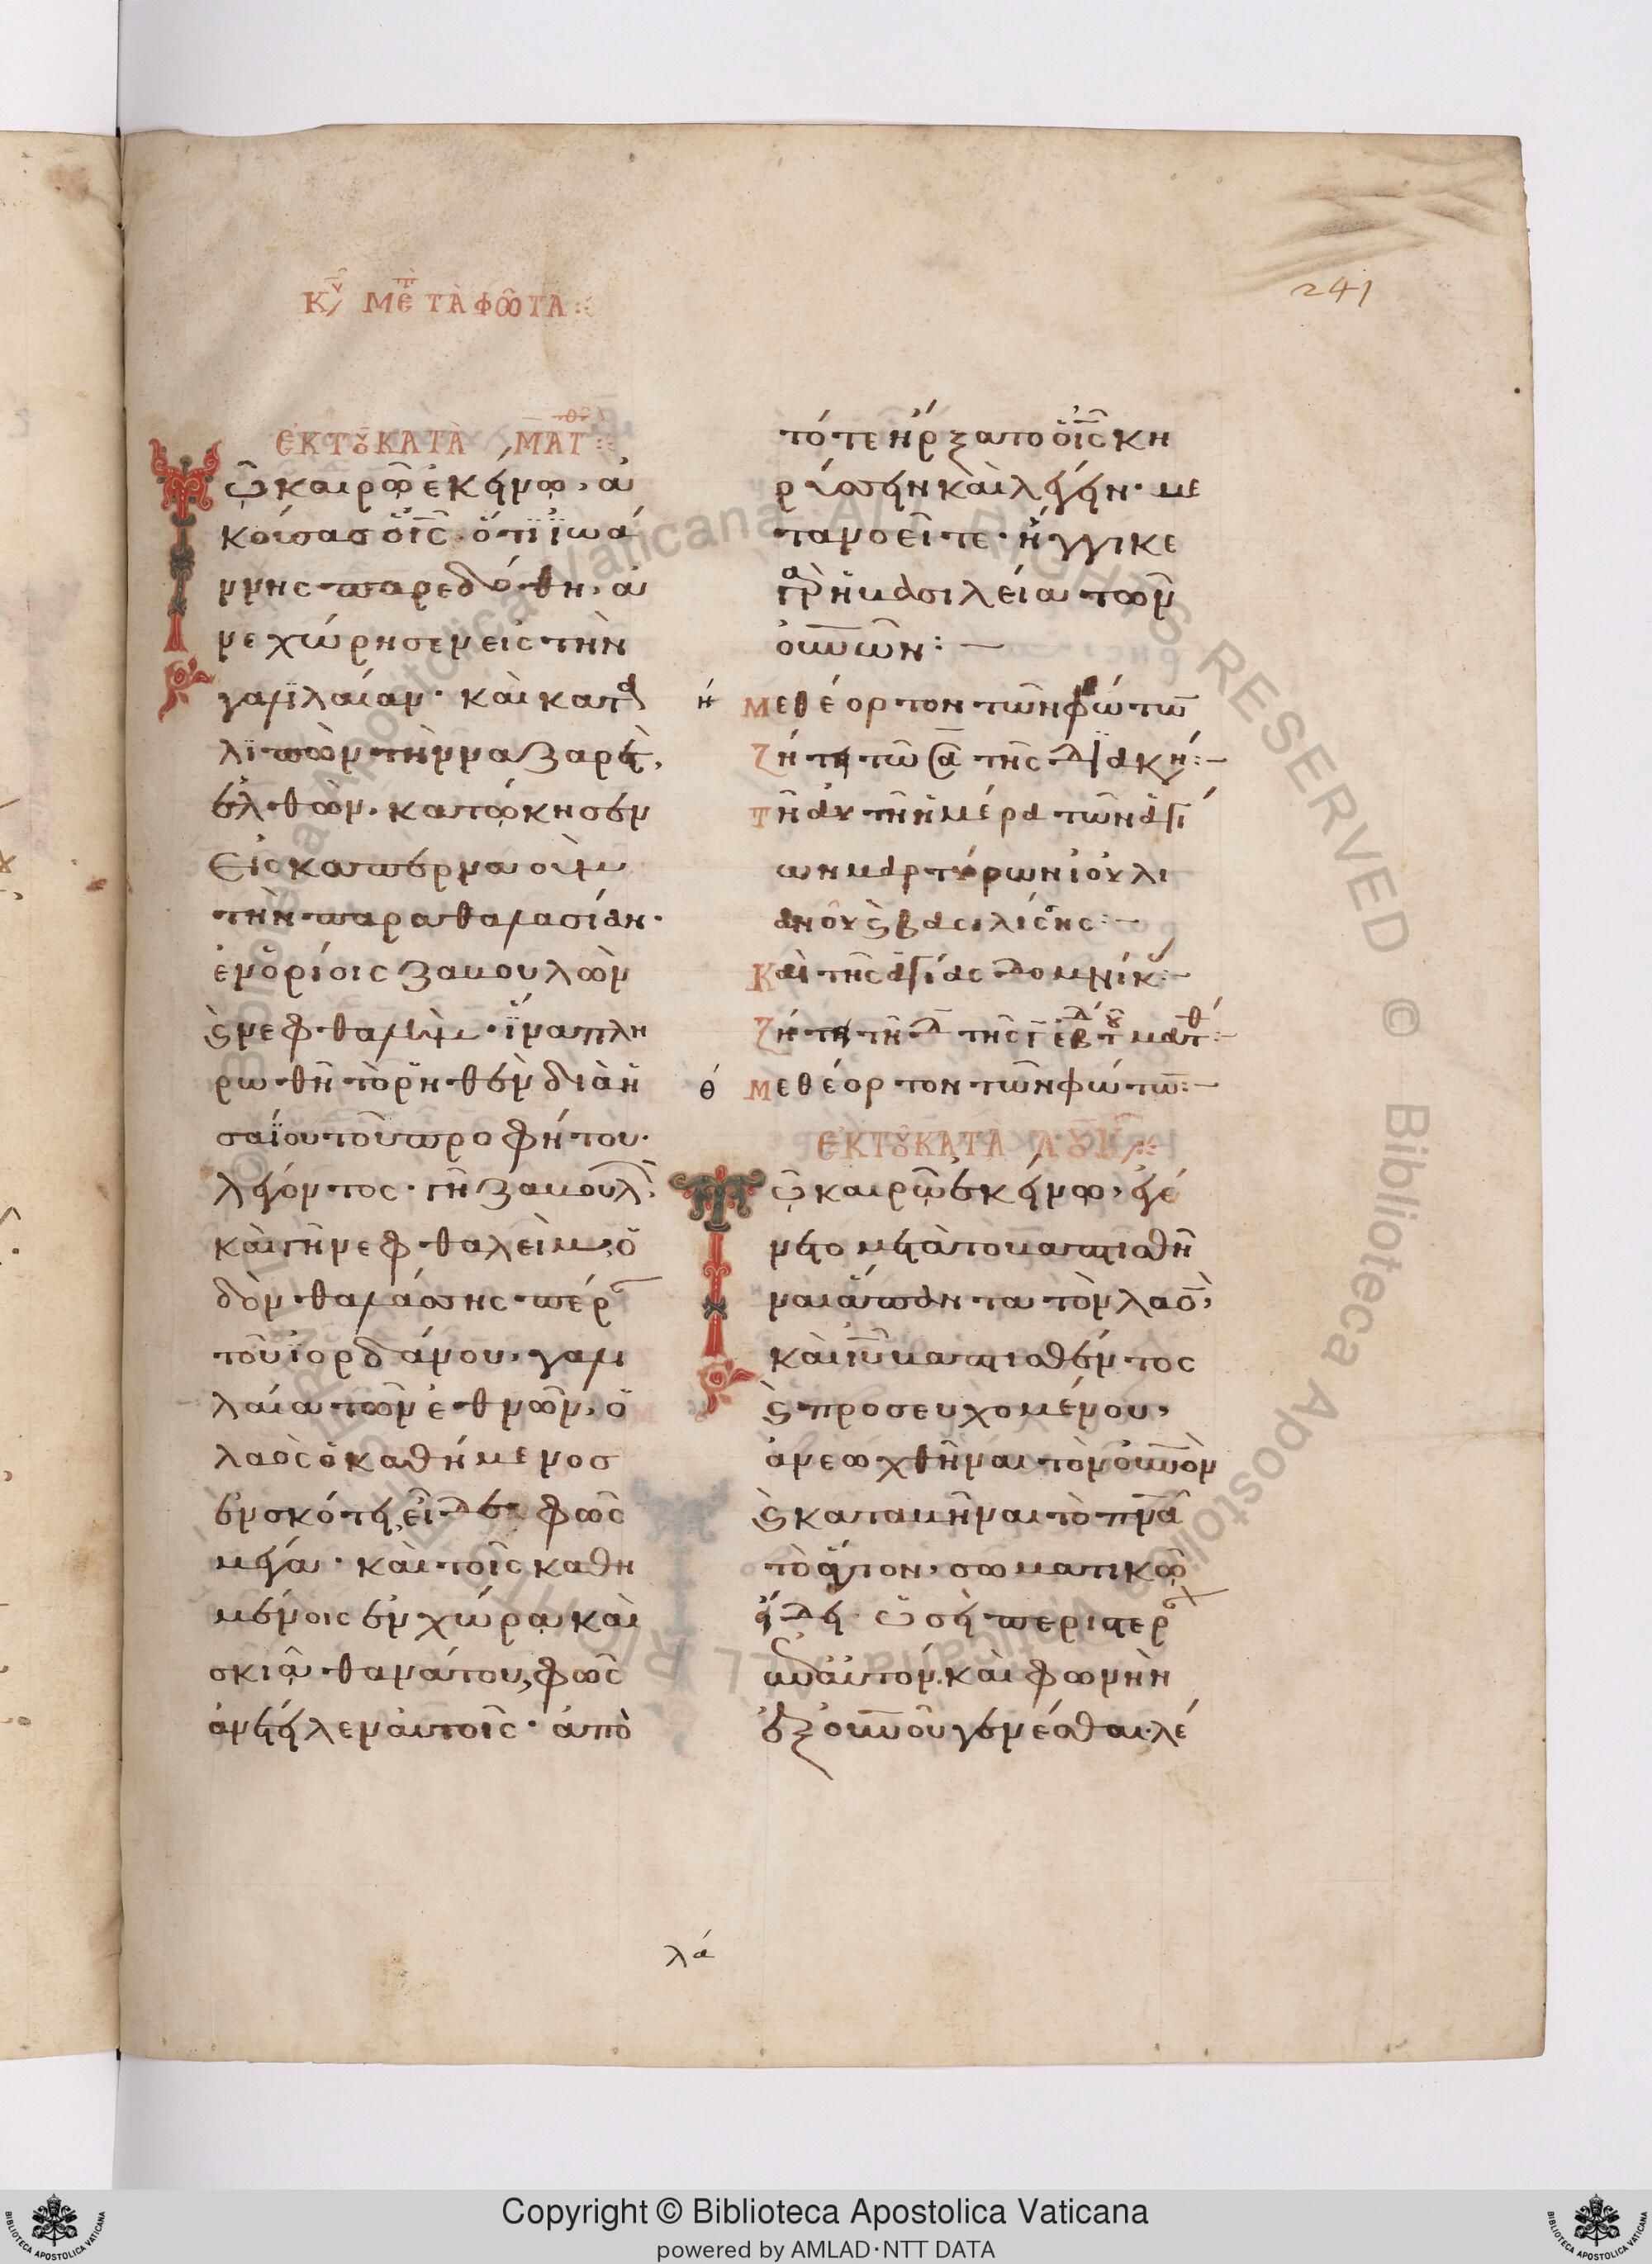 Κυ ΜΕΤΑ ΤΑ ΦΩΤΑ:
241
ΕΚ ΤΟΥ ΚΑΤΑ ΜΑΤΘ:
Τῶ καιρῶ ἐκείνω, ἀ
κούσας ὁ ις ὅτι ἰωά
ννης παρεδόθη, ἀ
νεχώρησεν εἰς τὴν
γαλιλαίαν· καὶ κατα
λιπὼν τὴν ναζαρέτ,
ἐλθὼν κατώκησεν
εἰς καπερναοὺμ
τὴν παραθαλασίαν·
ἐν ὁρίοις ζαβουλὼν
ϗ νεφθαλεὶμ· ἵνα πλη
ρωθῆ τὸ ῥηθὲν διὰ ἡ
σαΐου τοῦ προφήτου
λέγοντος· γῆ ζαβουλ,
καὶ γῆ νεφθαλεὶμ, ὁ
δὸν θαλάσσης πέρ
τοῦ ἰορδάνου, γαλι
λαία τῶν ἐθνῶν, ὁ
λαὸς ὁ καθήμενος
ἐν σκότει, εἶδε φῶς
μέγα· καὶ τοῖς καθη
μένοις ἐν χώρα καὶ
σκιᾶ θανάτου, φῶς
ἀνέτειλεν αὐτοῖς· ἀπὸ
τότε ἤρξατο ὁ ις κη
ρύσσειν καὶ λέγειν· με
τανοεῖτε· ἤγγικε
γὰρ ἡ βασιλεία τῶν
οὐνῶν:—
ή Μεθέορτον τῶν φώτω
Ζήτει τῶ σα τῆς διακη:—
Τῆ αυ τῆ ἡμέρα τῶν ἁγί
ων μαρτύρων ἰουλι
ανοῦ ϗ βασιλίσης:—
Καὶ τῆς ἁγίας δομνίκ:—
Ζήτει τῆ δ τῆς ι εβδ τοῦ ματθ:—
θ Μεθέορτον τῶν φώτω:—
ΕΚ ΤΟΥ ΚΑΤΑ ΛΟΥΚ:
Τῶ καιρῶ ἐκείνω, ἐγέ
νετο μετὰ τὸ βαπτισθῆ
ναι ἅπαντα τὸν λαὸ,
καὶ ιυ βαπτισθέντος
ϗ προσευχομένου,
ἀνεωχθῆναι τὸν οὐνὸν
ϗ καταβῆναι τὸ πνα
τὸ ἅγιον, σωματικῶ
εἴδει ὡσεὶ περιστερ
ἐπ' αὐτόν. καὶ φωνὴν
ἐξ οὐνοῦ γενέσθαι· λέ
λά
© Biblioteca Apostolica Vaticana ALL RIGHTS RESERVED
Copyright © Biblioteca Apostolica Vaticana
powered by AMLAD·NTT DATA
BIBLIOTECA APOSTOLICA VATICANA
BIBLIOTECA APOSTOLICA VATICANA